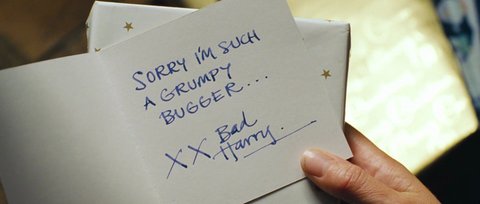 SORRY I'M SUCH
A GRUMPY
BUGGER...
XX Bad
Harry.